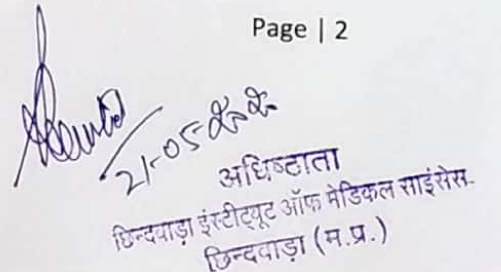 Page | 2
21-05-2022
अधिष्ठाता
छिन्दवाड़ा इंस्टीट्यूट ऑफ मेडिकल साइंसेस.
छिन्दवाड़ा (म.प्र.)